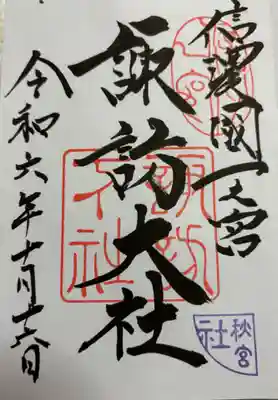 信濃國一之宮
諏訪大社
令和六年十月十六日
諏訪大社
秋宮
社